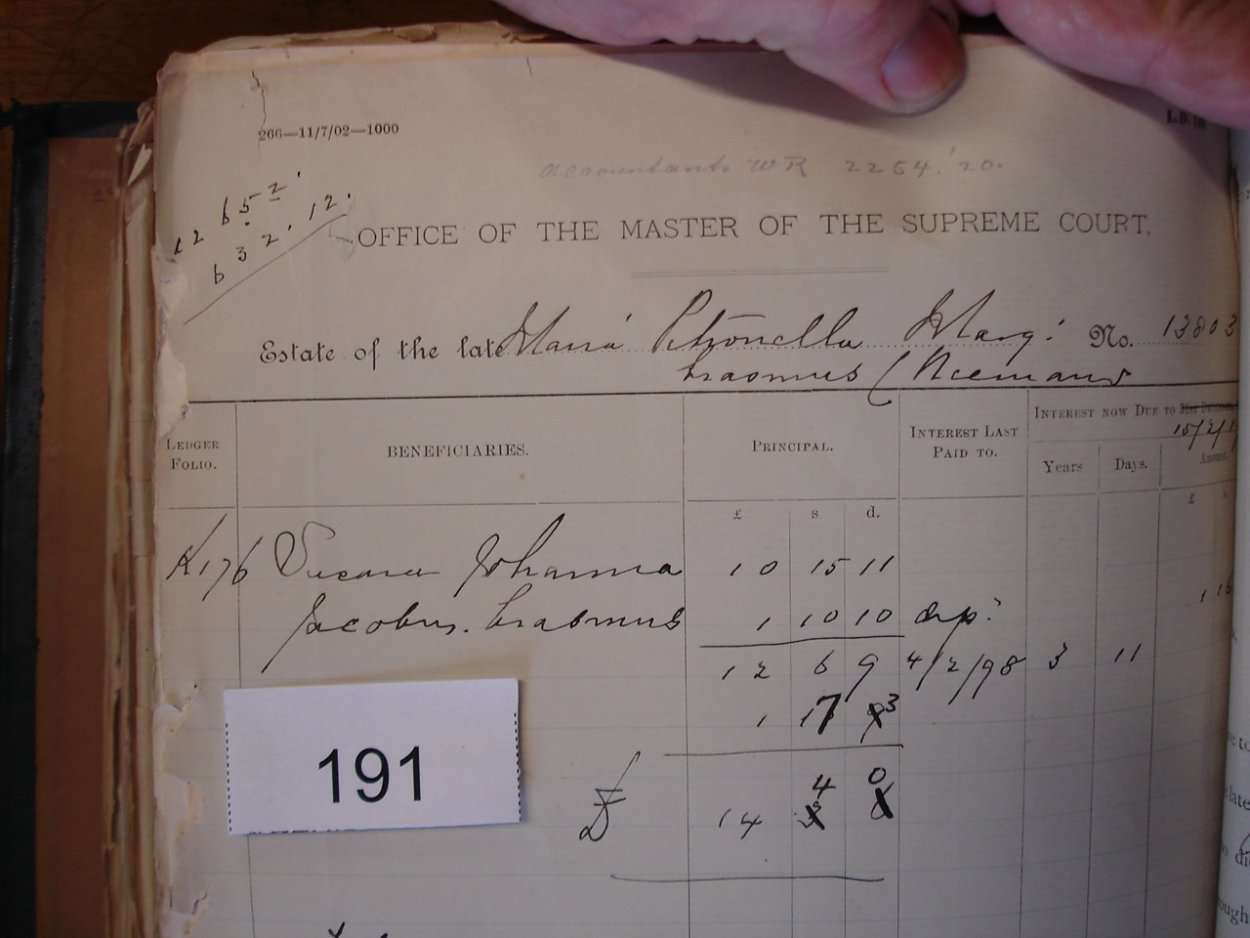 266—11/7/02—1000
L.D.
accountants WR 2254/20.
12 65 2
6 3 2. 12.
OFFICE OF THE MASTER OF THE SUPREME COURT,
Estate of the late Maria Petronella Marg: No. 13803
Erasmus (Niemand
LEDGER FOLIO.
BENEFICIARIES.
PRINCIPAL.
INTEREST LAST PAID TO.
INTEREST NOW DUE TO
15/2/1
Years
Days.
Amount.
£ s. d.
£
K176 Susara Johanna 10 15 11
Jacobus. Erasmus 1 10 10
12 6 9 4/2/98 3 11
1 17 3
4 0
£ 14
191